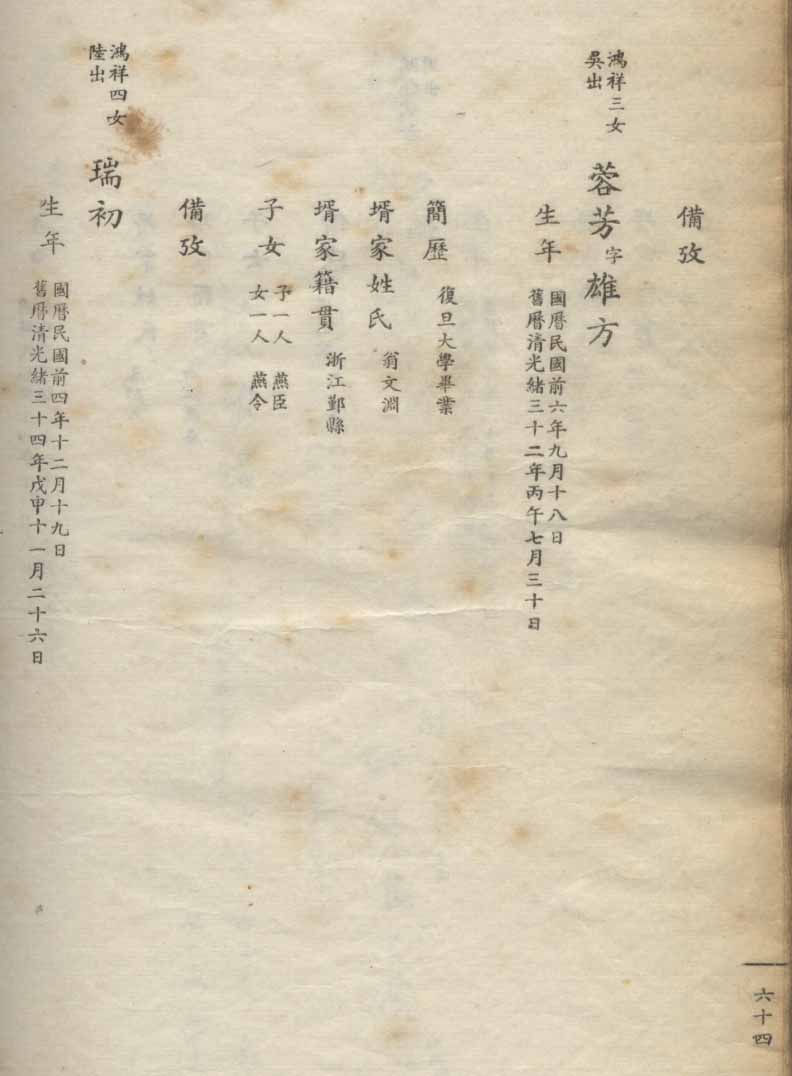 備攷
鴻祥三女
吳出
蓉芳字雄方
生年
國曆民國前六年九月十八日
舊曆清光緒三十二年丙午七月三十日
簡歷
復旦大學畢業
壻家姓氏
翁文淵
壻家籍貫
浙江鄞縣
子女
子一人 燕臣
女一人 燕令
備攷
鴻祥四女
陸出
瑞初
生年
國曆民國前四年十二月十九日
舊曆清光緒三十四年戊申十一月二十六日
六十四